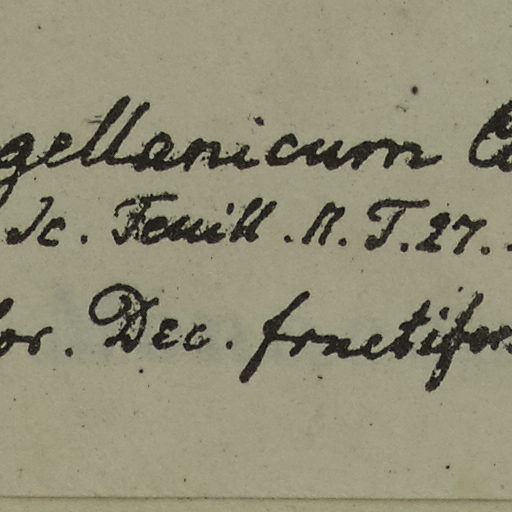 gellanicum C
Ic. Feuill. R. T. 27.
or. Dec. fructifer